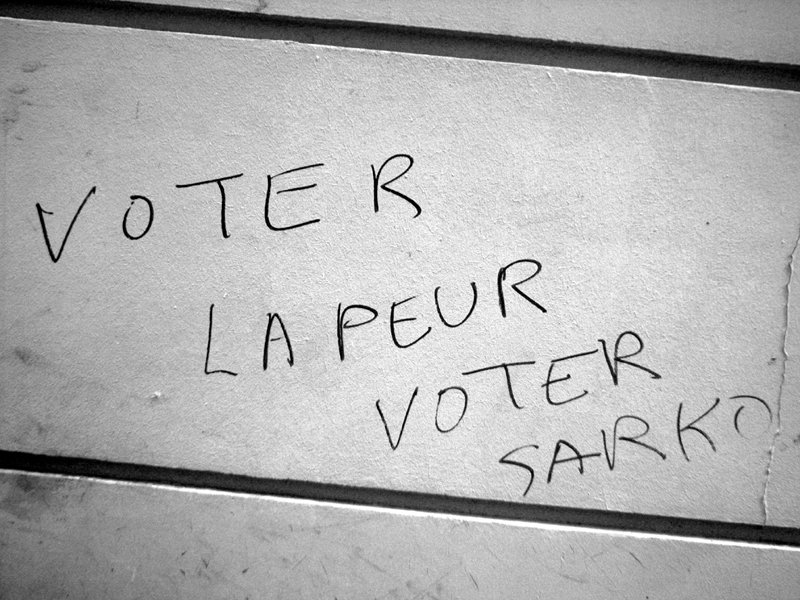 VOTER
LA PEUR
VOTER
SARKO